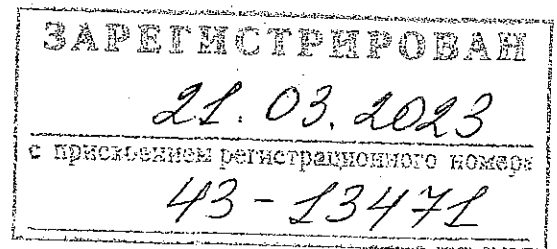 ЗАРЕГИСТРИРОВАН
21.03.2023
с присвоением регистрационного номера
43-13471